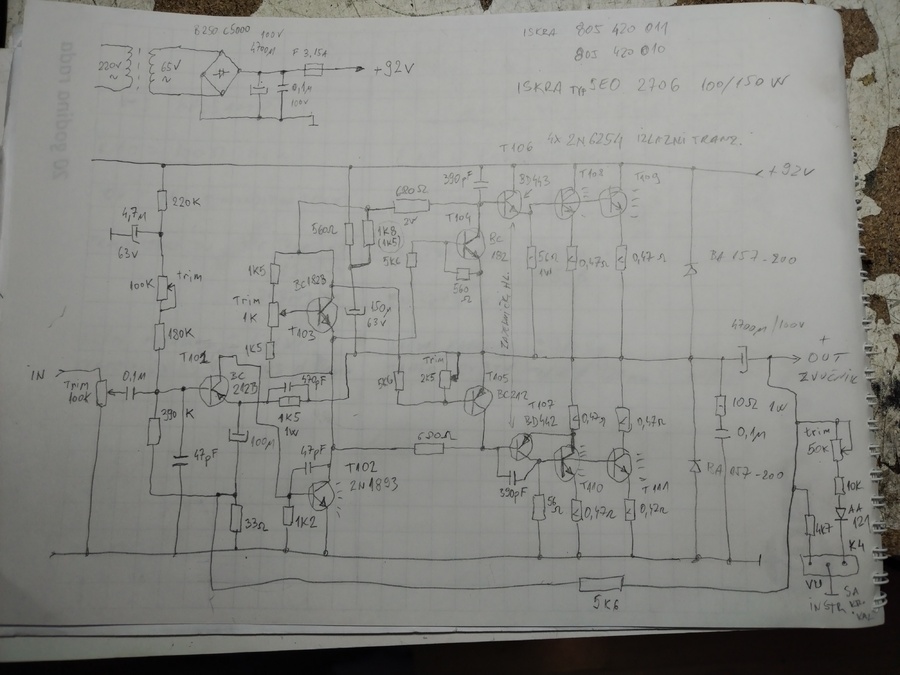 B250 C5000
100V
4700µ
F 3,15A
220V
~
65V
~
+92V
0,1µ
100V
ISKRA 805 420 011
805 420 010
ISKRA TYP SEO 2706 100/150W
4x 2N6254 IZLAZNI TRANZ.
T106
T108
T109
+92V
390pF
BD443
220K
4,7µ
63V
680Ω
2V
T104
BC
182
560Ω
1K8
(1K5)
5K6
1K5
BC182B
56Ω
1W
0,47Ω
0,47Ω
BA 157-200
560
Ω
100K
trim
Trim
1K
T103
150µ
63V
180K
1K5
4700µ/100V
+
OUT
ZVUČNIK
IN
T101
BC
212B
Trim
100K
0,1µ
470pF
5K6
Trim
2K5
T105
BC212
1K5
1W
10Ω
1W
0,1µ
390
K
100µ
47pF
47pF
680Ω
T107
BD442
0,47Ω
0,47Ω
trim
50K
T102
2N1893
390pF
T110
T111
BA 157-200
10K
AA
121
33Ω
1K2
56
Ω
0,47Ω
0,47Ω
4K7
K4
VU
INSTR.
SA
5K6